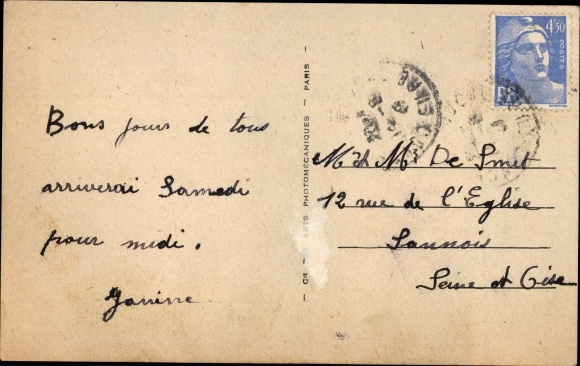 Bons jours de tous
arriverai Samedi
pour midi.
Janine
ARTS PHOTOMÉCANIQUES — PARIS —
4f50
POSTES
RF
M et M De Smet
12 rue de l'Eglise
Sannois
Seine et Oise